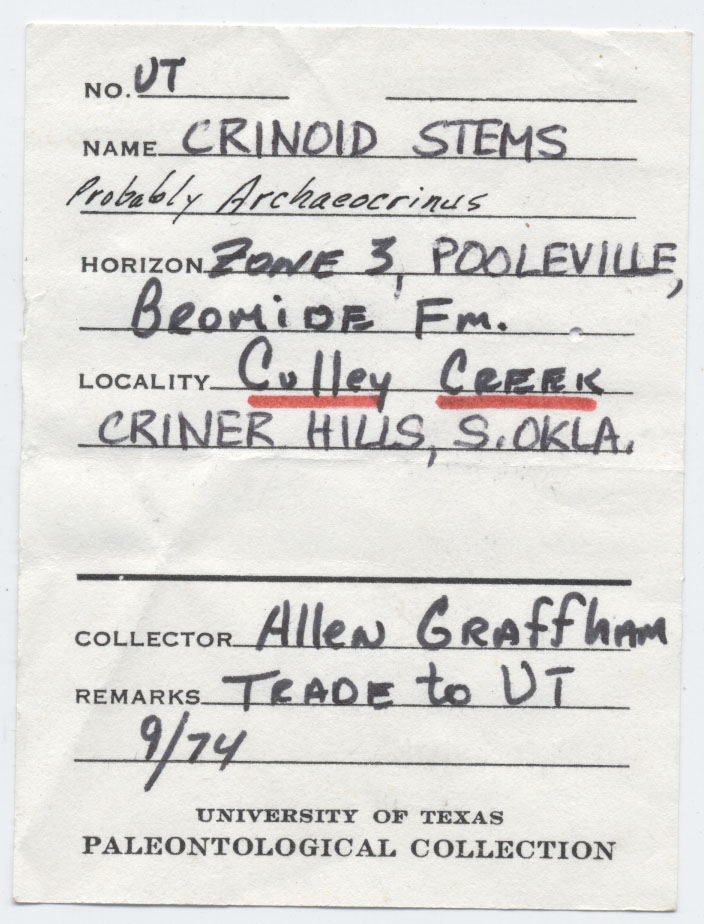 NO. UT
NAME CRINOID STEMS
Probably Archaeocrinus
HORIZON ZONE 3, POOLEVILLE,
BROMIDE Fm.
LOCALITY Culley CREEK
CRINER HILLS, S. OKLA.
COLLECTOR Allen GRAffhAM
REMARKS TRADE to UT
9/74
UNIVERSITY OF TEXAS
PALEONTOLOGICAL COLLECTION